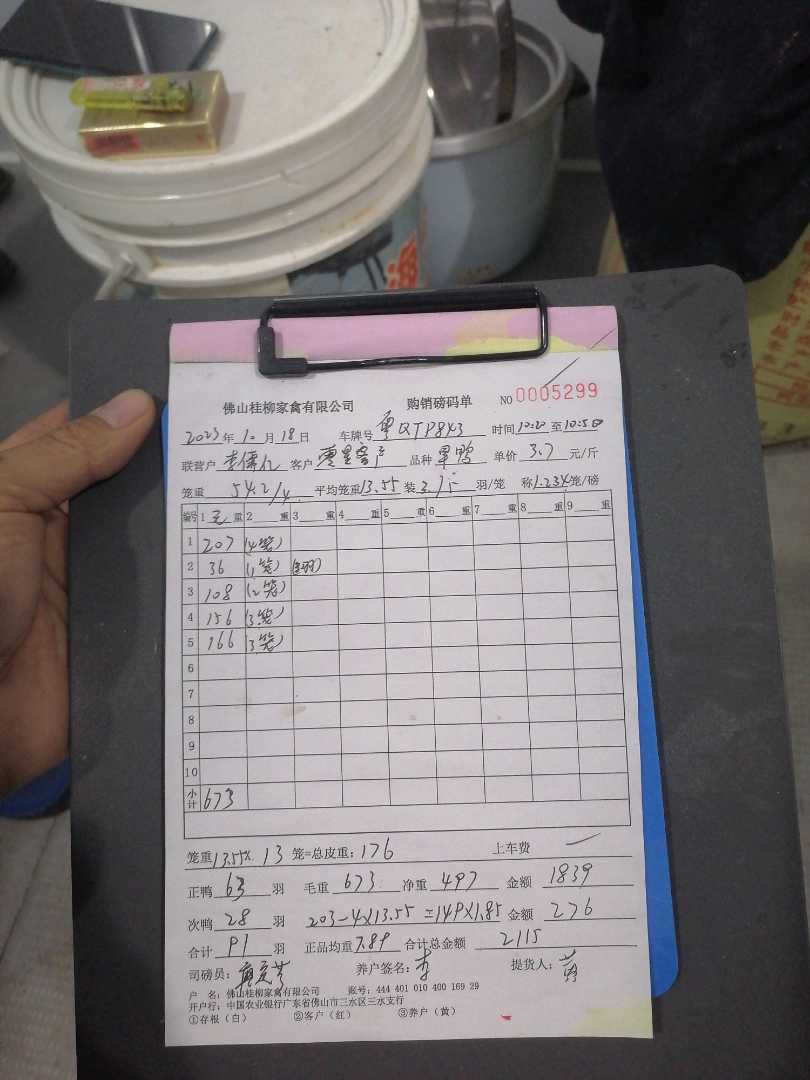 佛山桂柳家禽有限公司 购销磅码单 NO 0005299
2023年10月18日 车牌号 粤QTP843 时间10:20至10:50
联营户 李儒仁 客户 零星客户 品种 单鸭 单价 3.7 元/斤
笼重 54.2/4 平均笼重13.55 装3.75 羽/笼 称1.234笼/磅
编号 1 毛 重 2 重 3 重 4 重 5 重 6 重 7 重 8 重 9 重
1 207 (4笼)
2 36 (1笼)
3 108 (2笼)
4 156 (3笼)
5 166 (3笼)
6
7
8
9
10
小计 673
笼重13.55×13笼=总皮重:176 上车费 —
正鸭 63 羽 毛重 673 净重 497 金额 1839
次鸭 28 羽 203-4×13.55=149×1.85 金额 276
合计 91 羽 正品均重7.89 合计总金额 2115
司磅员: 养户签名:李 提货人:
户 名:佛山桂柳家禽有限公司 账号:444 401 010 400 169 29
开户行:中国农业银行广东省佛山市三水区三水支行
①存根(白) ②客户(红) ③养户(黄)